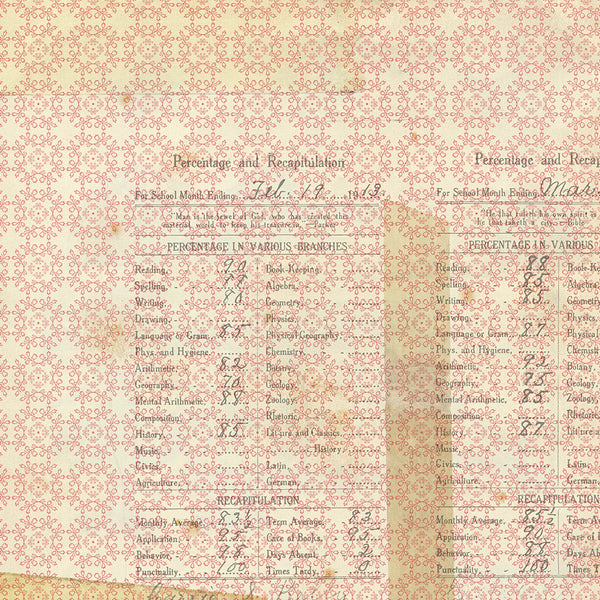 Percentage and Recapitulation
For School Month Ending Feb. 19 1913
"Man is the jewel of God, who has created this
material world to keep his treasure in. —Parker
PERCENTAGE IN VARIOUS BRANCHES
Reading, 90 Book-Keeping,
Spelling, Algebra,
Writing, 80 Geometry,
Drawing, Physics,
Language or Gram. 85 Physical Geography,
Phys. and Hygiene, Chemistry,
Arithmetic, 82 Botany,
Geography, 90 Geology,
Mental Arithmetic, 88 Zoology,
Composition, Rhetoric,
History, 85 Lit'ure and Classics,
Music, History,
Civics, Latin,
Agriculture, German,
RECAPITULATION
Monthly Average, 83½ Term Average, 83
Application, Care of Books,
Behavior, 98 Days Absent,
Punctuality, 100 Times Tardy, 0
Percentage and Recap
For School Month Ending Mar.
"He that ruleth his own spirit is
he that taketh a city.—Bible
PERCENTAGE IN VARIOUS
Reading, 88 Book-K
Spelling, 85 Algebra
Writing, 85 Geomet
Drawing, Physics
Language or Gram. 87 Physica
Phys. and Hygiene, Chemist
Arithmetic, 92 Botany
Geography, 85 Geology
Mental Arithmetic, 85 Zoology
Composition, Rhetori
History, 87 Lit'ure a
Music,
Civics, Latin,
Agriculture, German,
RECAPITULATION
Monthly Average, 85½ Term A
Application, 90 Care of
Behavior, 88 Days A
Punctuality, 100 Times T